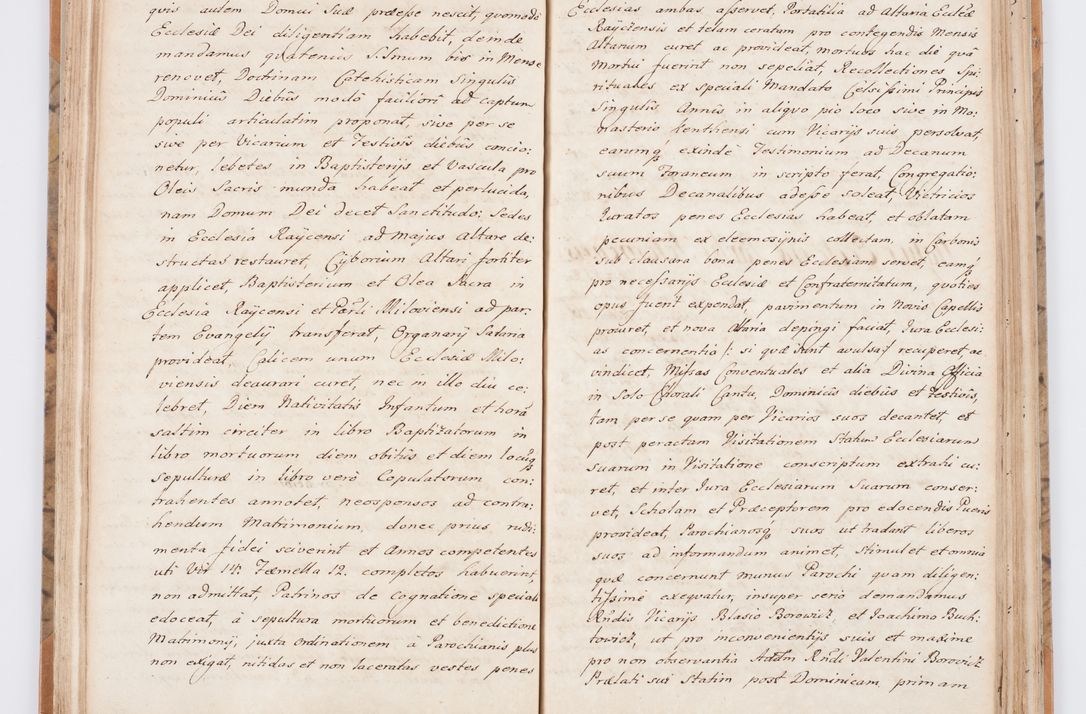 quis autem Domui Suæ præesse nescit, quomodo
Ecclesiæ Dei diligentiam habebit, deinde
mandamus quatenus S.Smum bis in Mense
renovet, Doctrinam Catehisticam Singulis
Dominicis Diebus modo faciliori ad captum
populi articulatim proponat, sive per se
sive per Vicarium et Festivis diebus concio:
netur, lebetes in Baptisterijs et Vascula pro
Oleis Sacris munda habeat et perlucida,
nam Domum Dei decet Sanctitudo: Sedes
in Ecclesia Raÿcensi ad Majus Altare de:
structas restauret, Cÿborium Altari fortiter
applicet, Baptisterium et Olea Sacra in
Ecclesia Raÿcensi et Parli Miloviensi ad par:
tem Evangelij transferat, Organarij Salaria
provideat, Calicem unum Ecclesiæ Milo:
viensis deaurari curet, nec in illo diu ce:
lebret, Diem Nativitatis Infantum et hora
saltim circiter in libro Baptizatorum in
libro mortuorum diem obitus et diem locuq
sepulturæ in libro verò Copulatorum con:
trahentes annotet, neosponsos ad contra:
hendum Matrimonium, donec prius rudi:
menta fidei sciverint et Annos competentes
uti Vir 14. Fæmella 12. completos habuerint,
non admittat, Patrinos de Cognatione speciali
edoceat, à sepultura mortuorum et benedictione
Matrimonij, juxta ordinationem à Parochianis plus
non exigat, nitidas et non laceratas vestes penes
Ecclesias ambas asservet, Portatilia ad Altaria Eccleæ
Raÿczensis et telam ceratam pro contegendis Mensis
Altarium curet ac provideat, mortuos hac die qua
Mortui fuerint non sepeliat, Recollectiones Spi:
rituales ex speciali Mandato Celsissimi Principis
Singulis Annis in aliquo pio loco sive in Mo:
nasterio Kenthensi cum Vicarijs suis persolvat,
earumq exinde Testimonium ad Decanum
suum Foraneum in scripto ferat, Congregatio:
nibus Decanalibus adesse soleat, Victricios
Iuratos penes Ecclesias habeat, et oblatam
pecuniam ex eleemosÿnis collectam in Carbonis
sub clausura bona penes Ecclesiam servet, eamq
pro necessarijs Ecclesiæ et Confraternitatum, quoties
opus fuerit expendat, pavimentum in Novis Capellis
procuret, et nova Altaria depingi faciat, Iura Ecclesi:
as concernentia /: si quæ sunt avulsa:/ recuperet, ac
vindicet, Missas Conventuales et alia Divina Officia
in Solo Chorali Cantu, Dominicis diebus et Festivis,
tam per se quam per Vicarios suos decantet, et
post peractam Visitationem Statum Ecclesiarum
suarum in Visitatione conscriptum extrahi cu:
ret, et inter Iura Ecclesiarum Suarum conser:
vet, Scholam et Præceptorem pro edocendis Pueris
provideat, Parochianosq suos ut tradant liberos
suos ad informandum animet, Stimulet et omnia
quæ concernunt munus Parochi quam diligen:
tissime exequatur, insuper serio demandamus
Rndis Vicarijs Blasio Borowicz, et Joachimo Buch:
towicz, ut pro inconvenientijs suis et maxime
pro non observantia Rndi Valentini Borowicz
Prælati sui Statim post Dominicam primam